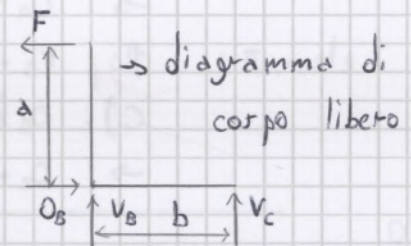 F
→ diagramma di
corpo libero
a
O_B V_B b V_C